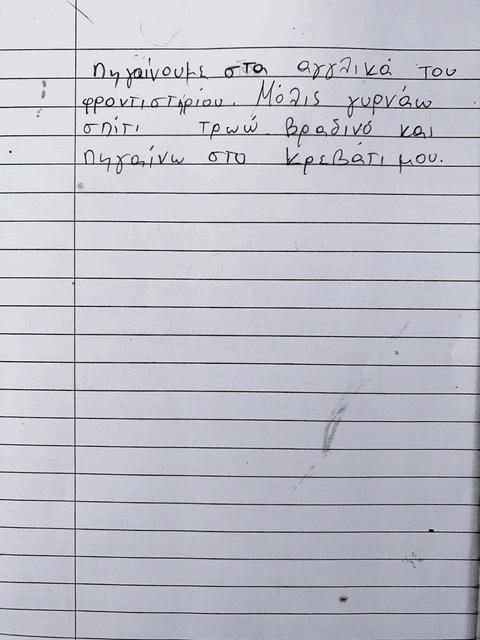 πηγαίνουμε στα αγγλικά του
φροντιστηρίου. Μόλις γυρνάω
σπίτι τρωώ βραδινό και
πηγαίνω στο κρεβάτι μου.